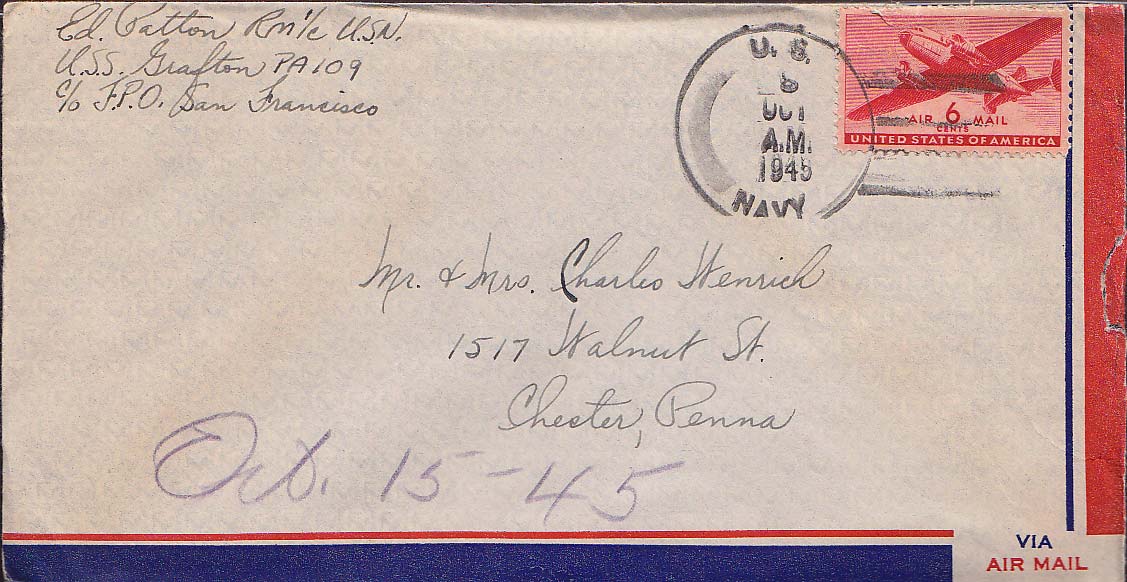 Ed. Patton RM 1/c U.S.N.
U.S.S. Grafton PA109
c/o F.P.O. San Francisco
U. S.
OCT
A.M.
1945
NAVY
AIR 6 MAIL
CENTS
UNITED STATES OF AMERICA
Mr. & Mrs. Charles Henrich
1517 Walnut St.
Chester, Penna
Oct. 15-45
VIA
AIR MAIL